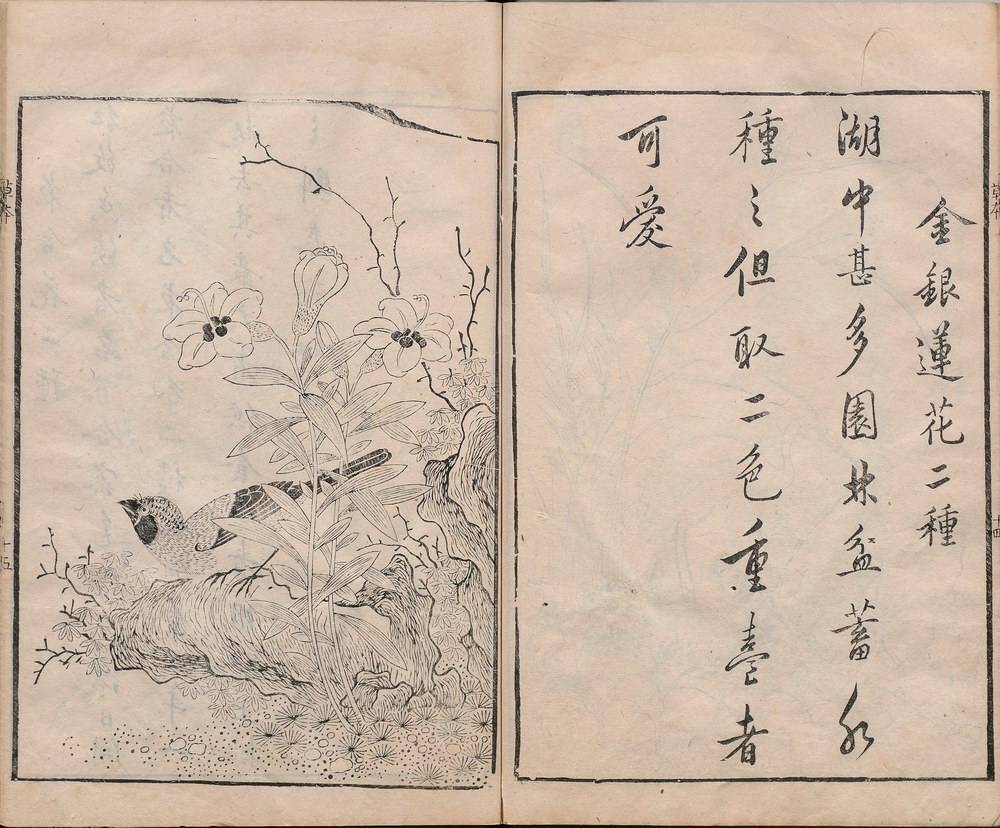 金銀蓮花二種
湖中甚多園林盆蓄水
種之但取二色重臺者
可愛
草本
十五